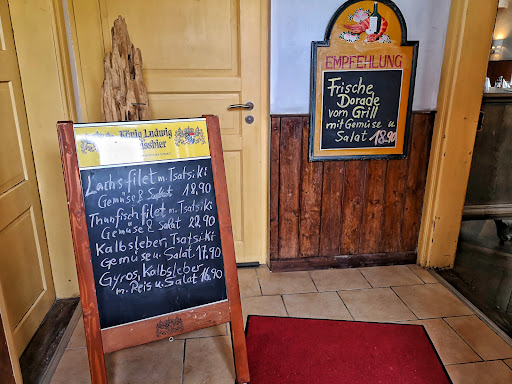 König Ludwig
Weissbier
Lachsfilet m. Tsatsiki
Gemüse & Salat 18,90
Thunfischfilet m. Tsatsiki
Gemüse & Salat 22,90
Kalbsleber, Tsatsiki
Gemüse u. Salat 17,90
Gyros, Kalbsleber
m. Reis u. Salat 16,90
EMPFEHLUNG
Frische
Dorade
vom Grill
mit Gemüse u
Salat 18.90